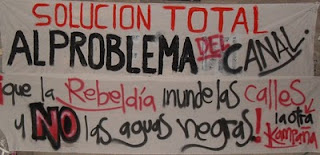 SOLUCION TOTAL
AL PROBLEMA DEL CANAL.
¡que la Rebeldía inunde las calles
y NO las aguas negras! la otra
Kampaña